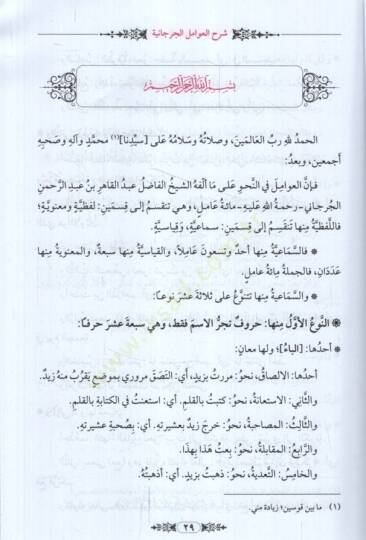 شرح العوامل الجرجانية
بسم الله الرحمن الرحيم
الحمدُ للهِ ربِّ العالمينَ، وصلاتُهُ وسَلامُهُ عَلى [سيِّدِنا](١) محمَّدٍ وآلِهِ وصَحبِهِ
أجمعين، وبعدُ:
فإنَّ العوامِلَ في النَّحوِ عَلى مَا ألَّفهُ الشيخُ الفاضلُ عبدُ القاهرِ بنُ عبدِ الرَّحمنِ
الجُرجاني - رحمةُ اللهِ عَليهِ - مائةُ عَاملٍ، وهي تنقسمُ إلى قِسمَينِ: لفظيَّةٍ ومعنويَّةٍ؛
فاللَّفظيَّةُ مِنها تَنقَسِمُ إلى قِسمَينِ: سَماعيَّةٍ، وقياسيَّةٍ.
* فالسَّماعيَّةُ مِنها أحدٌ وتسعونَ عَامِلًا، والقياسيةُ مِنها سبعةٌ، والمعنويةُ مِنها
عَدَدَانِ، فالجملةُ مائةُ عاملٍ.
* والسَّماعيةُ مِنها تتنوَّعُ على ثلاثةَ عشرَ نوعًا:
* النَّوعُ الأوَّلُ مِنها: حروفٌ تجرُّ الاسمَ فقط، وهي سبعةَ عشرَ حرفًا:
* أحدُها: [الباءُ]؛ ولها معانٍ:
أحدُها: الالصاقُ، نحوُ: مررتُ بزيدٍ، أي: التصَقَ مروري بموضعٍ يَقرُبُ منهُ زيدٌ.
والثَّاني: الاستعانةُ، نحوُ: كتبتُ بالقلمِ، أي: استعنتُ في الكتابةِ بالقلمِ.
والثَّالِثُ: المصاحبةُ، نحوُ: خرجَ زيدٌ بعشيرتِهِ، أي: بصُحبةِ عشيرتِهِ.
والرَّابعُ: المقابلةُ، نحوُ: بعتُ هَذا بهذَا.
والخامِسُ: التَّعديةُ، نحوُ: ذهبتُ بزيدٍ. أي: أذهبتُهُ.
(١) ما بين قوسين؛ زيادة مني.
٢٩